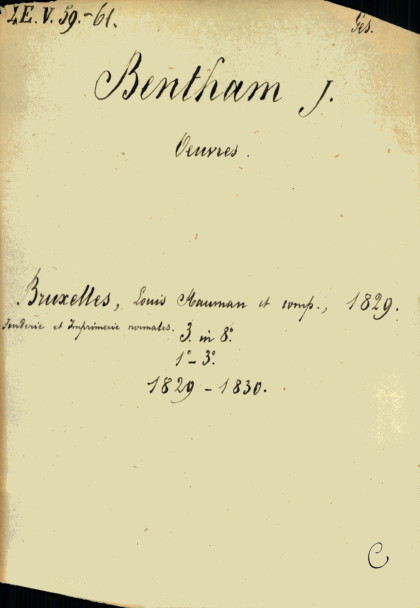 I.E.V. 59.-61.
Ges.
Bentham J.
Oeuvres.
Bruxelles, Louis Hauman et comp., 1829.
Fonderie et Imprimerie normales.
3. in 8°.
1°- 3°.
1829 - 1830.
C